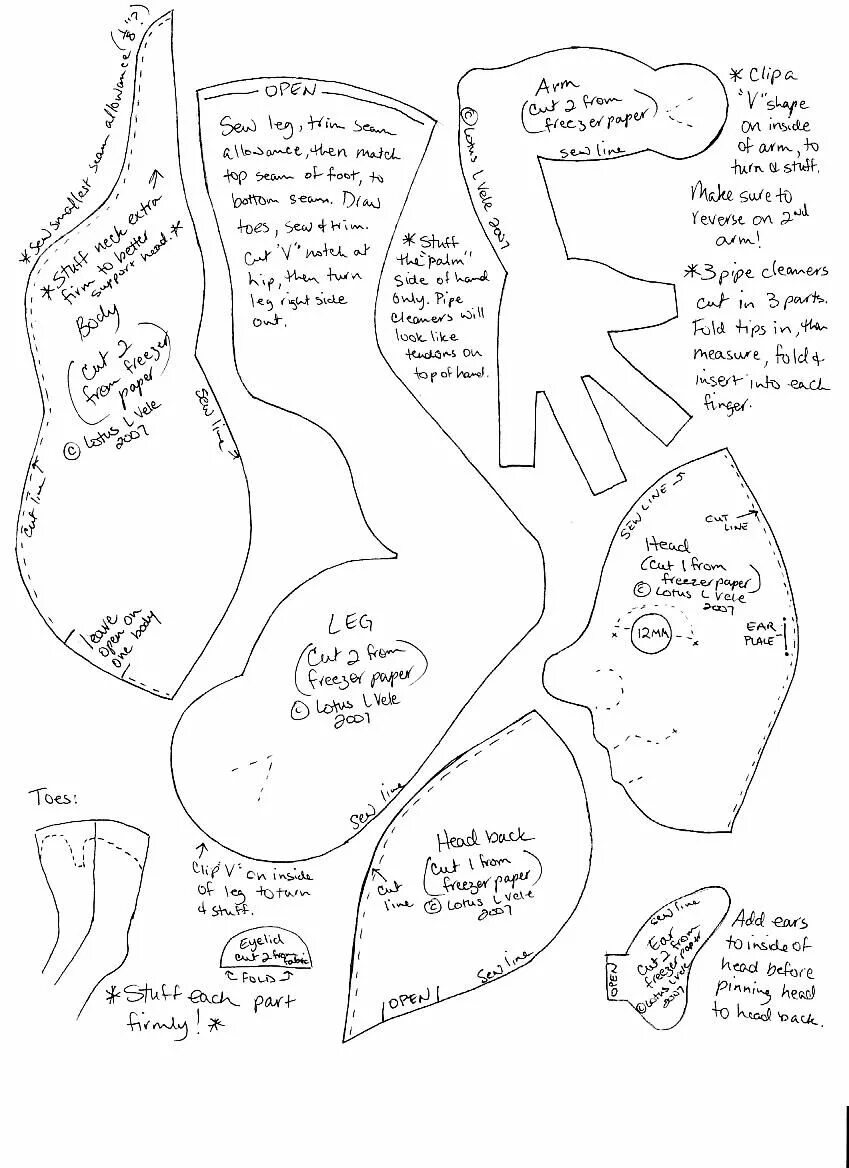 *Sew smallest seam allowance (⅛"?)
*Stuff neck extra
firm to better
support head.*
Body
(Cut 2
from freezer
paper)
© Lotus L Vele
2007
Sew line
Cut line
leave
open on
one body
OPEN
Sew leg, trim seam
allowance, then match
top seam of foot, to
bottom seam. Draw
toes, sew & trim.
Cut "V" notch at
hip, then turn
leg right side
out.
LEG
(Cut 2 from
freezer paper)
© Lotus L Vele
2007
Sew line
Clip "V" on inside
of leg to turn
& stuff.
Arm
(Cut 2 from
freezer paper)
sew line
© Lotus L Vele 2007
*Clip a
"V" shape
on inside
of arm, to
turn & stuff.
Make sure to
reverse on 2nd
arm!
*Stuff
the "palm"
side of hand
only. Pipe
cleaners will
look like
tendons on
top of hand.
*3 pipe cleaners
cut in 3 parts.
Fold tips in, then
measure, fold &
insert into each
finger.
SEW LINE
CUT
LINE
Head
(Cut 1 from
freezer paper)
© Lotus L Vele
2007
12MM
EAR
PLACE
Head back
(Cut 1 from
freezer paper)
© Lotus L Vele
2007
Cut
line
Sew line
OPEN
Toes:
Eyelid
Cut 2 from fabric
FOLD
*Stuff each part
firmly!*
sew line
Ear
Cut 2 from
freezer paper
© Lotus L Vele
2007
OPEN
Add ears
to inside of
head before
pinning head
to head back.